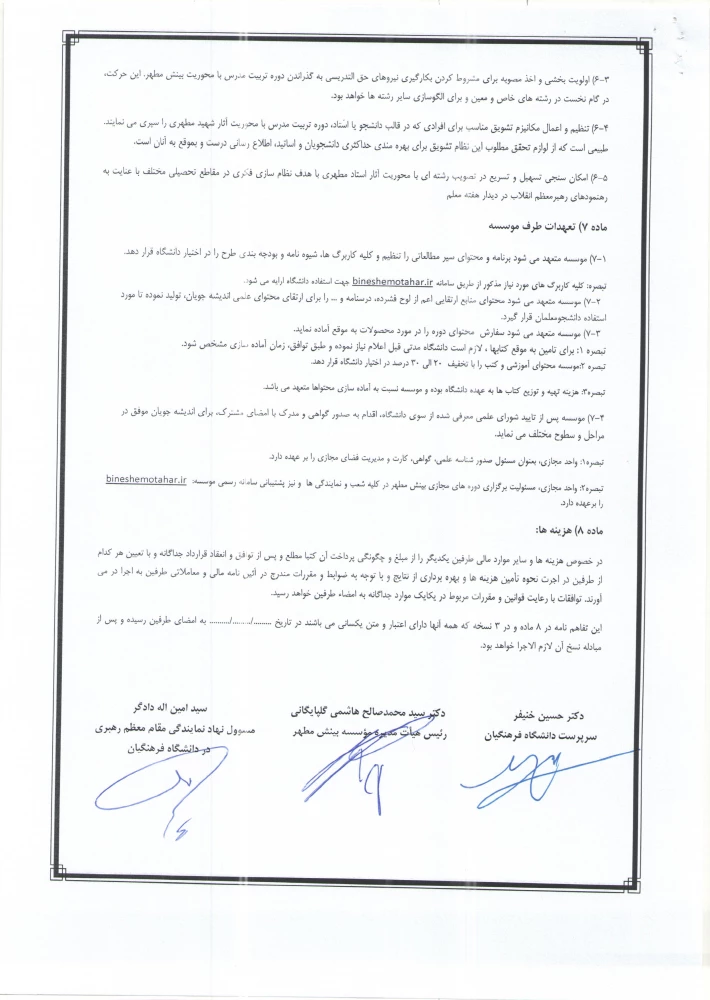 ۶-۳) اولویت بخشی و اخذ مصوبه برای مشروط کردن بکارگیری نیروهای حق التدریسی به گذراندن دوره تربیت مدرس با محوریت بینش مطهر. این حرکت،
در گام نخست در رشته های خاص و معین و برای الگوسازی سایر رشته ها خواهد بود.
۶-۴) تنظیم و اعمال مکانیزم تشویق مناسب برای افرادی که در قالب دانشجو یا استاد، دوره تربیت مدرس با محوریت آثار شهید مطهری را سپری می نمایند.
طبیعی است که از لوازم تحقق مطلوب این نظام تشویق برای بهره مندی حداکثری دانشجویان و اساتید، اطلاع رسانی درست و بموقع به آنان است.
۶-۵) امکان سنجی تسهیل و تسریع در تصویب رشته ای با محوریت آثار استاد مطهری با هدف نظام سازی فکری در مقاطع تحصیلی مختلف با عنایت به
رهنمودهای رهبرمعظم انقلاب در دیدار هفته معلم
ماده ۷) تعهدات طرف موسسه
۷-۱) موسسه متعهد می شود برنامه و محتوای سیر مطالعاتی را تنظیم و کلیه کاربرگ ها، شیوه نامه و بودجه بندی طرح را در اختیار دانشگاه قرار دهد.
تبصره: کلیه کاربرگ های مورد نیاز مذکور از طریق سامانه bineshemotahar.ir جهت استفاده دانشگاه ارایه می شود.
۷-۲) موسسه متعهد می شود محتوای منابع ارتقایی اعم از لوح فشرده، درسنامه و ... را برای ارتقای محتوای علمی اندیشه جویان، تولید نموده تا مورد
استفاده دانشجومعلمان قرار گیرد.
۷-۳) موسسه متعهد می شود سفارش محتوای دوره را در مورد محصولات به موقع آماده نماید.
تبصره ۱: برای تامین به موقع کتابها ، لازم است دانشگاه مدتی قبل اعلام نیاز نموده و طبق توافق، زمان آماده سازی مشخص شود.
تبصره ۲:موسسه محتوای آموزشی و کتب را با تخفیف ۲۰ الی ۳۰ درصد در اختیار دانشگاه قرار دهد.
تبصره۳: هزینه تهیه و توزیع کتاب ها به عهده دانشگاه بوده و موسسه نسبت به آماده سازی محتواها متعهد می باشد.
۷-۴) موسسه پس از تایید شورای علمی معرفی شده از سوی دانشگاه، اقدام به صدور گواهی و مدرک با امضای مشترک، برای اندیشه جویان موفق در
مراحل و سطوح مختلف می نماید.
تبصره۱: واحد مجازی، بعنوان مسئول صدور شناسه علمی، گواهی، کارت و مدیریت فضای مجازی را بر عهده دارد.
تبصره۲: واحد مجازی، مسئولیت برگزاری دوره های مجازی بینش مطهر در کلیه شعب و نمایندگی ها و نیز پشتیبانی سامانه رسمی موسسه: bineshemotahar.ir
را برعهده دارد.
ماده ۸) هزینه ها:
در خصوص هزینه ها و سایر موارد مالی طرفین یکدیگر را از مبلغ و چگونگی پرداخت آن کتبا مطلع و پس از توافق و انعقاد قرارداد جداگانه و با تعیین هر کدام
از طرفین در اجرت نحوه تأمین هزینه ها و بهره برداری از نتایج و با توجه به ضوابط و مقررات مندرج در آئین نامه مالی و معاملاتی طرفین به اجرا در می
آورند. توافقات با رعایت قوانین و مقررات مربوط در یکایک موارد جداگانه به امضاء طرفین خواهد رسید.
این تفاهم نامه در ۸ ماده و در ۳ نسخه که همه آنها دارای اعتبار و متن یکسانی می باشند در تاریخ ........./........./......... به امضای طرفین رسیده و پس از
مبادله نسخ آن لازم الاجرا خواهد بود.
دکتر حسین خنیفر
سرپرست دانشگاه فرهنگیان
دکتر سید محمدصالح هاشمی گلپایگانی
رئیس هیأت مدیره مؤسسه بینش مطهر
سید امین اله دادگر
مسوول نهاد نمایندگی مقام معظم رهبری
در دانشگاه فرهنگیان